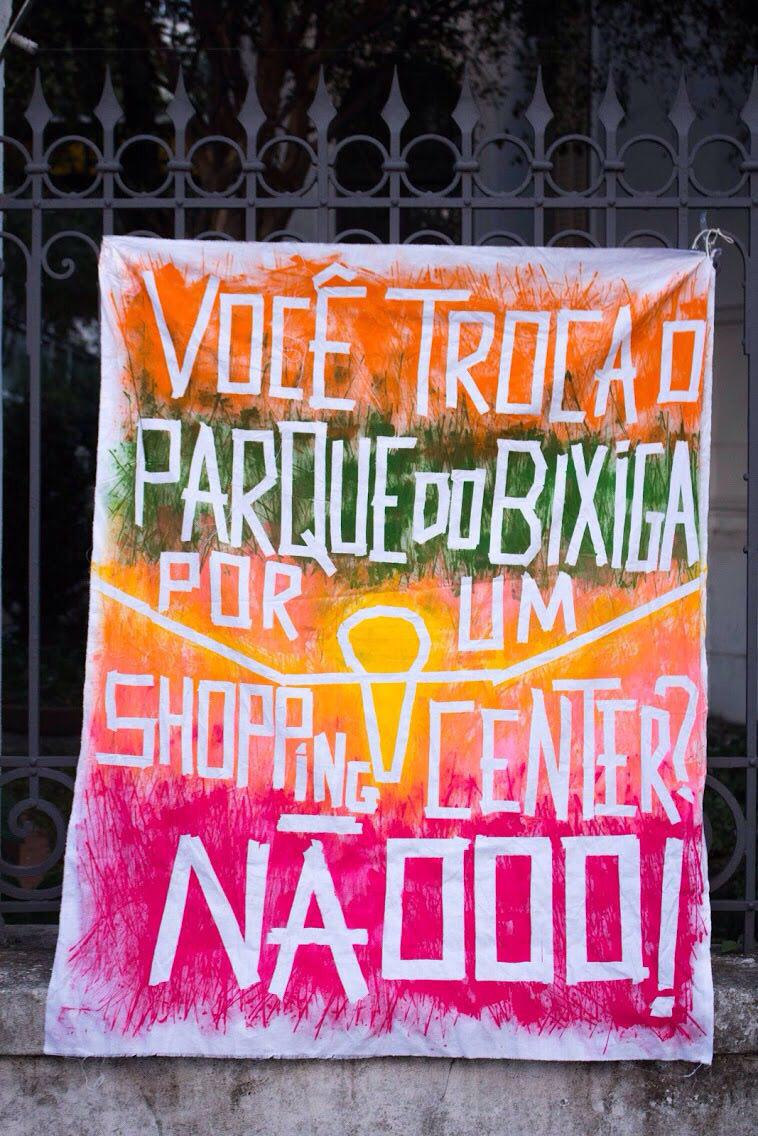 VOCÊ TROCA O
PARQUE DO BIXIGA
POR UM
SHOPPING CENTER?
NÃOOO!